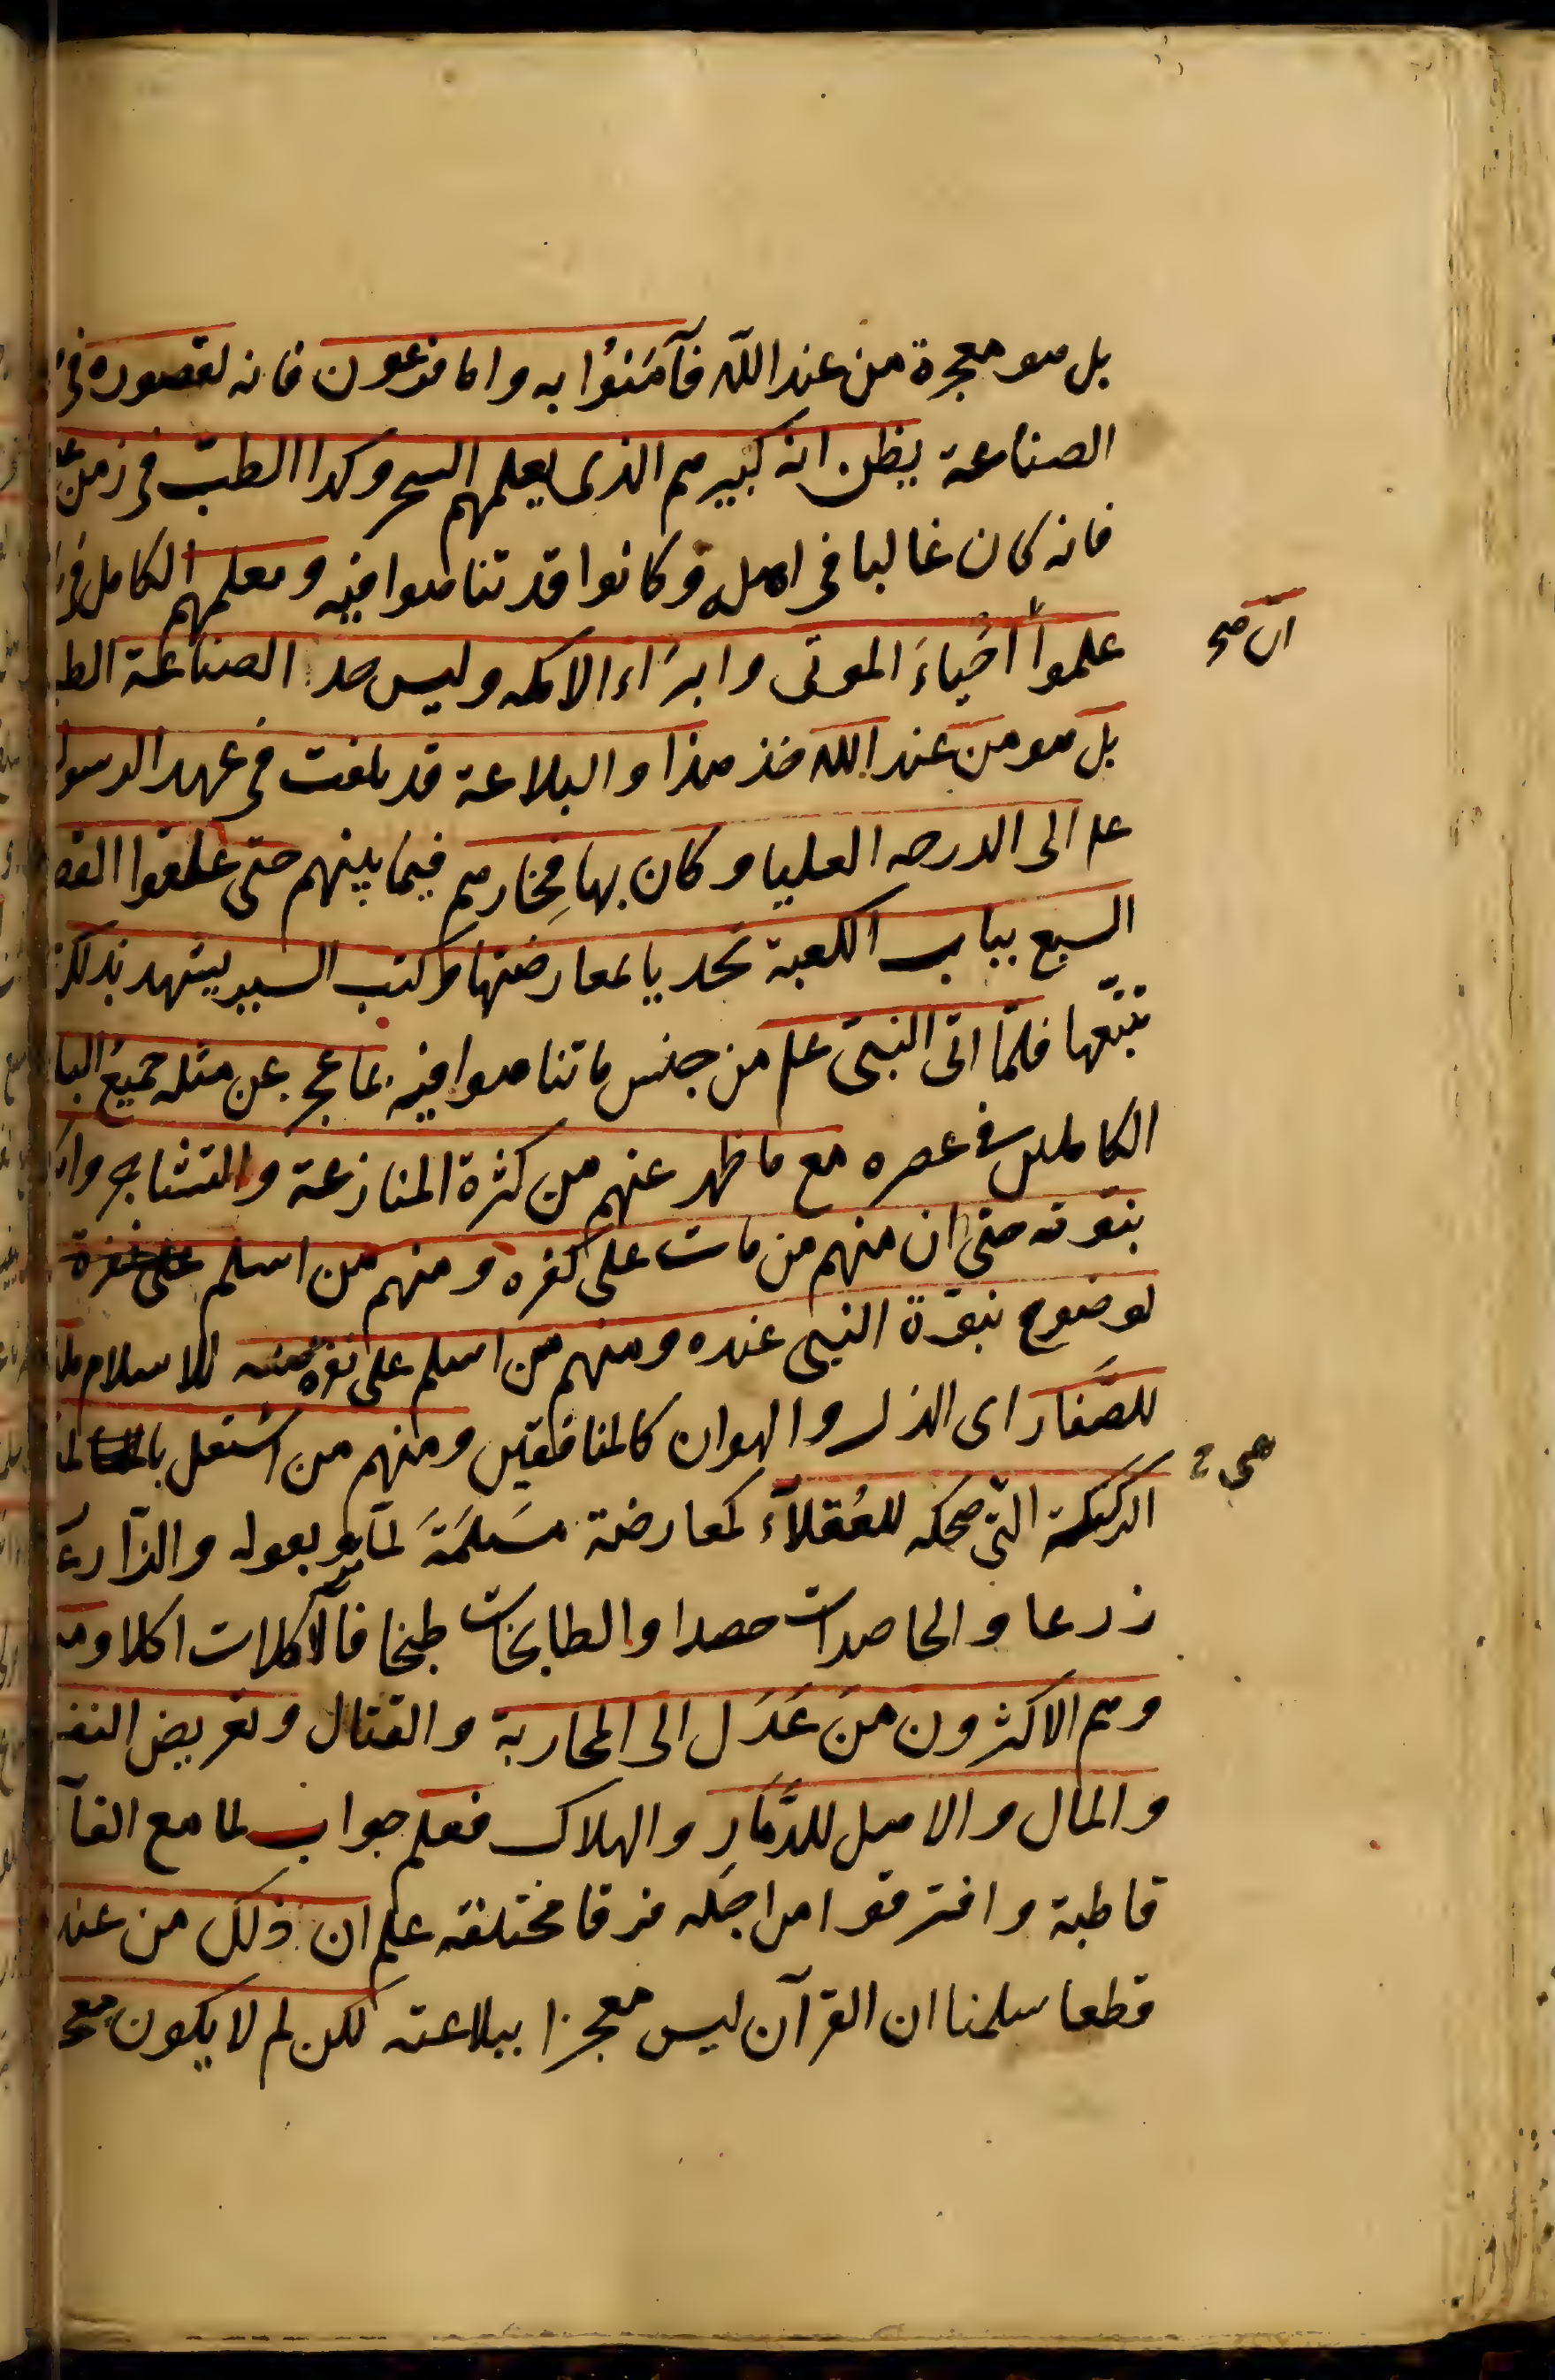 بل هو معجزة من عند الله فآمَنُوا به واما فرعون فانه لقصوره فى
الصناعة يظن انه كبيرهم الذى يعلمهم السحر وكذا الطب فى زمن
فانه كان غالبا فى اهله وكانوا قد تناهوا فيه وعلمهم الكامل فى
علموا أحْياءَ الموتى وابرَاء الاكمه وليس حد الصناعة الط
ان صح
بل هو من عند الله خذ هذا والبلاغة قد بلغت فى عهد الرسول
علم الى الدرجه العليا وكان بها فِخارهم فيما بينهم حتى علقوا القص
السبع بباب الكعبة تحديا لمعارضتها وكتب السير يشهد بذلك
تتبّعها فلمّا اتى النبى علم من جنس ما تناهوا فيه بما عجز عن مثله جميعُ البلـ
الكاملين فى عصره مع ما ظهر عنهم من كثرة المنازعة والتشاجر وا
بنبوته حتى ان منهم من مات على كفره ومنهم من اسلم
لوضوح نبوّة النبى عنده ومنهم من اسلم على نفرة منه للاسلام
للصَّغار اى الذل والهوان كالمنافقين ومنهم من اشتغل
الركيكة التى ضحكه للعُقلآء كمعارضة مسَيلمَة بقوله والزّارعـ
زرعا والحاصدات حصدا والطابخات طبخا فالآكلات اكلا ومـ
وهم الاكثرون منَ عَدَل الى المحاربة والقتال وتعريض النفـ
والمال والاهل للدَّمَارِ والهلاك فعلم جواب لما مع الفآ
قاطبة وافترقوا من اجله فرقا مختلفه علم ان ذلك من عند
قطعا سلمنا ان القرآن ليس معجزا ببلاغته لكن لم لا يكون معجـ